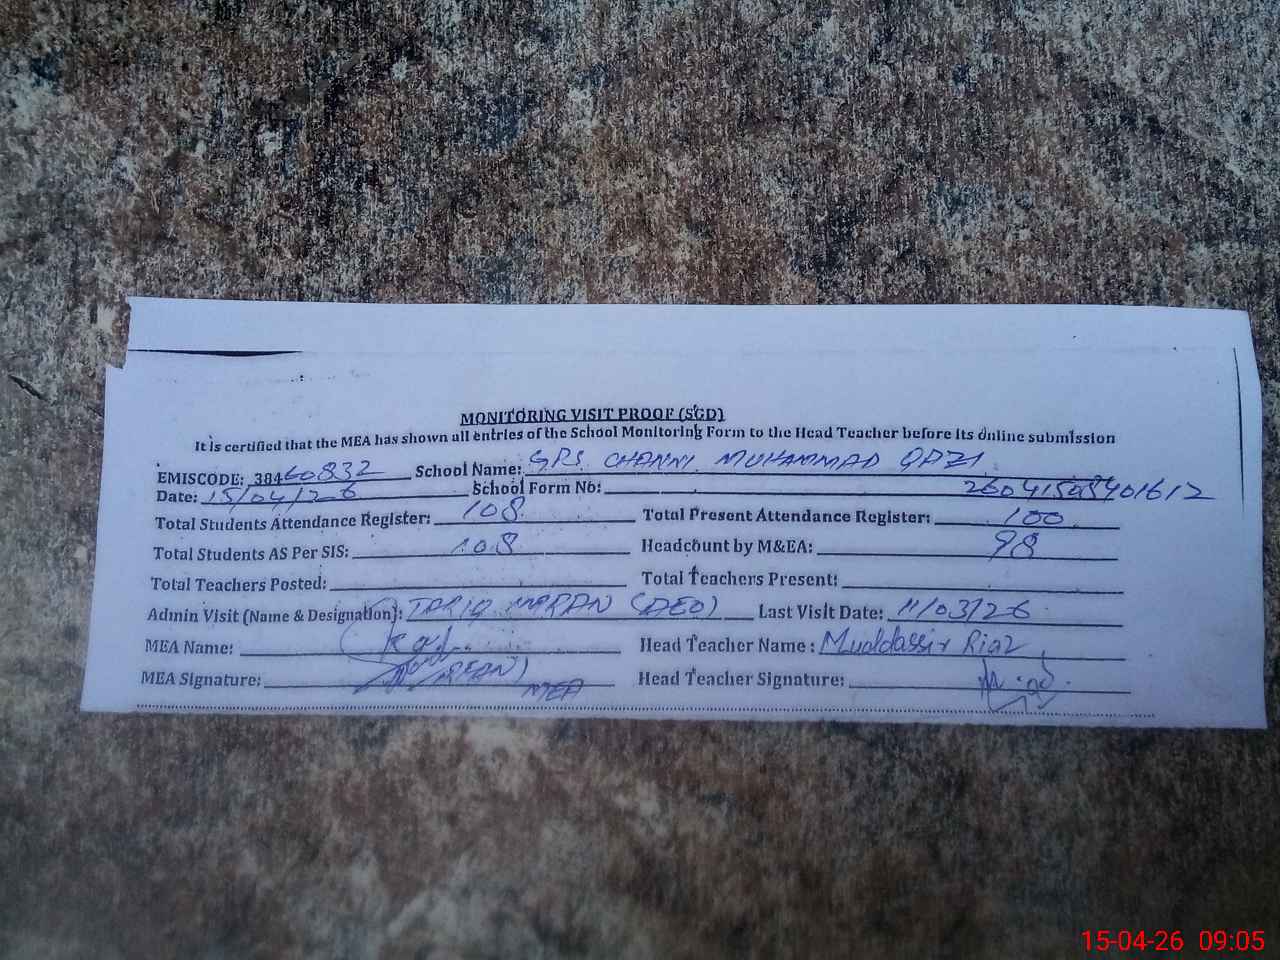 MONITORING VISIT PROOF (SGD)
It is certified that the MEA has shown all entries of the School Monitoring Form to the Head Teacher before its online submission
EMISCODE: 38460832 School Name: GPS CHANNI MUHAMMAD QAZI
Date: 15/04/26 School Form No: 26041508401612
Total Students Attendance Register: 108 Total Present Attendance Register: 100
Total Students AS Per SIS: 108 Headcount by M&EA: 98
Total Teachers Posted: Total Teachers Present:
Admin Visit (Name & Designation): TARIQ (AEO) Last Visit Date: 11/03/26
MEA Name: Head Teacher Name : Muddassir Riaz
MEA Signature: MEA Head Teacher Signature:
15-04-26 09:05